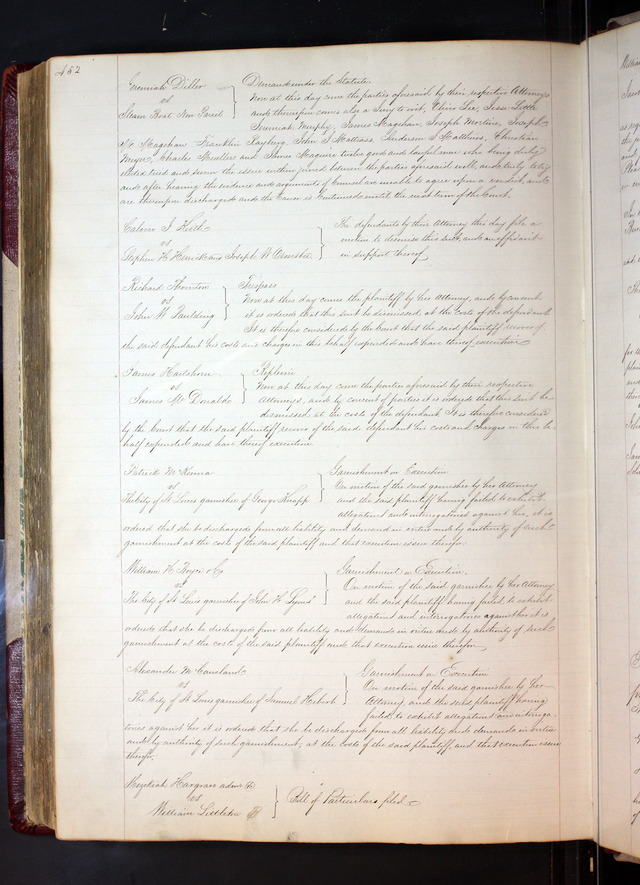 452
Jeremiah Diller } Demand under the Statute
vs
Steam Boat Non Pareil
Now at this day come the parties aforesaid by their respective Attorneys
and thereupon comes also a Jury to wit, Lee, Jesse Little
Jeremiah Murphy, James Mageehan, Joseph Joseph
Mc Mageehan Franklin John S Mattiass, Anderson S Matthews, Christian
Meyer, Charles Muellers and James Maguire twelve good and lawful men who being duly
elected tried and sworn the issue within joined between the parties aforesaid well and truly to try
and after hearing the evidence and arguments of Counsel are unable to agree upon a verdict, and
are thereupon discharged and the Cause is Continued until the next term of the Court.
Calvin J Keith
vs
Stephen H and Joseph W
} The defendants by their Attorney this day file a
motion to dismiss this suit, and an affidavit
in support thereof
Richard Thornton } Trespass
vs
John W Paulding
Now at this day comes the plaintiff by his Attorney, and by consent
it is ordered that this suit be dismissed, at the costs of the defendant
It is therefore considered by the Court that the said plaintiff recover of
the said defendant his costs and charges in this behalf expended and have thereof execution
James Hadshorn } Replevin
vs
James Mc Donald
Now at this day come the parties aforesaid by their respective
Attorneys, and by consent of parties it is ordered that this suit be
dismissed at the costs of the defendant. It is therefore considered
by the Court that the said plaintiff recover of the said defendant his costs and charges in this be
half expended and have thereof execution
Patrick McKenna } Garnishment on Execution
vs
The City of St Louis garnishee of George Knapp
On motion of the said garnishee by her Attorney
and the said plaintiff having failed to exhibit
allegations and interrogatories against her, it is
ordered that she be discharged from all liability and demand in virtue and by authority of such
garnishment at the costs of the said plaintiff and that execution issue therefor
William H & Co } Garnishment on Execution.
vs
The City of St Louis garnishee of John H Lyons
On motion of the said garnishee by her Attorney
and the said plaintiff having failed to exhibit
allegations and interrogatories against her it is
ordered that she be discharged from all liability and demands in virtue and by authority of such
garnishment at the costs of the said plaintiff and that execution issue therefor
Alexander McCausland } Garnishment on Execution
vs
The City of St Louis garnishee of Samuel
On motion of the said garnishee by her
Attorney, and the said plaintiff having
failed to exhibit allegations and interroga-
tories against her it is ordered that she be discharged from all liability and demands in virtue
and by authority of such garnishment, at the costs of the said plaintiff, and that execution issue
therefor.
Hezekiah Hargrave admr &c
vs
William Littleton
} Bill of Particulars filed